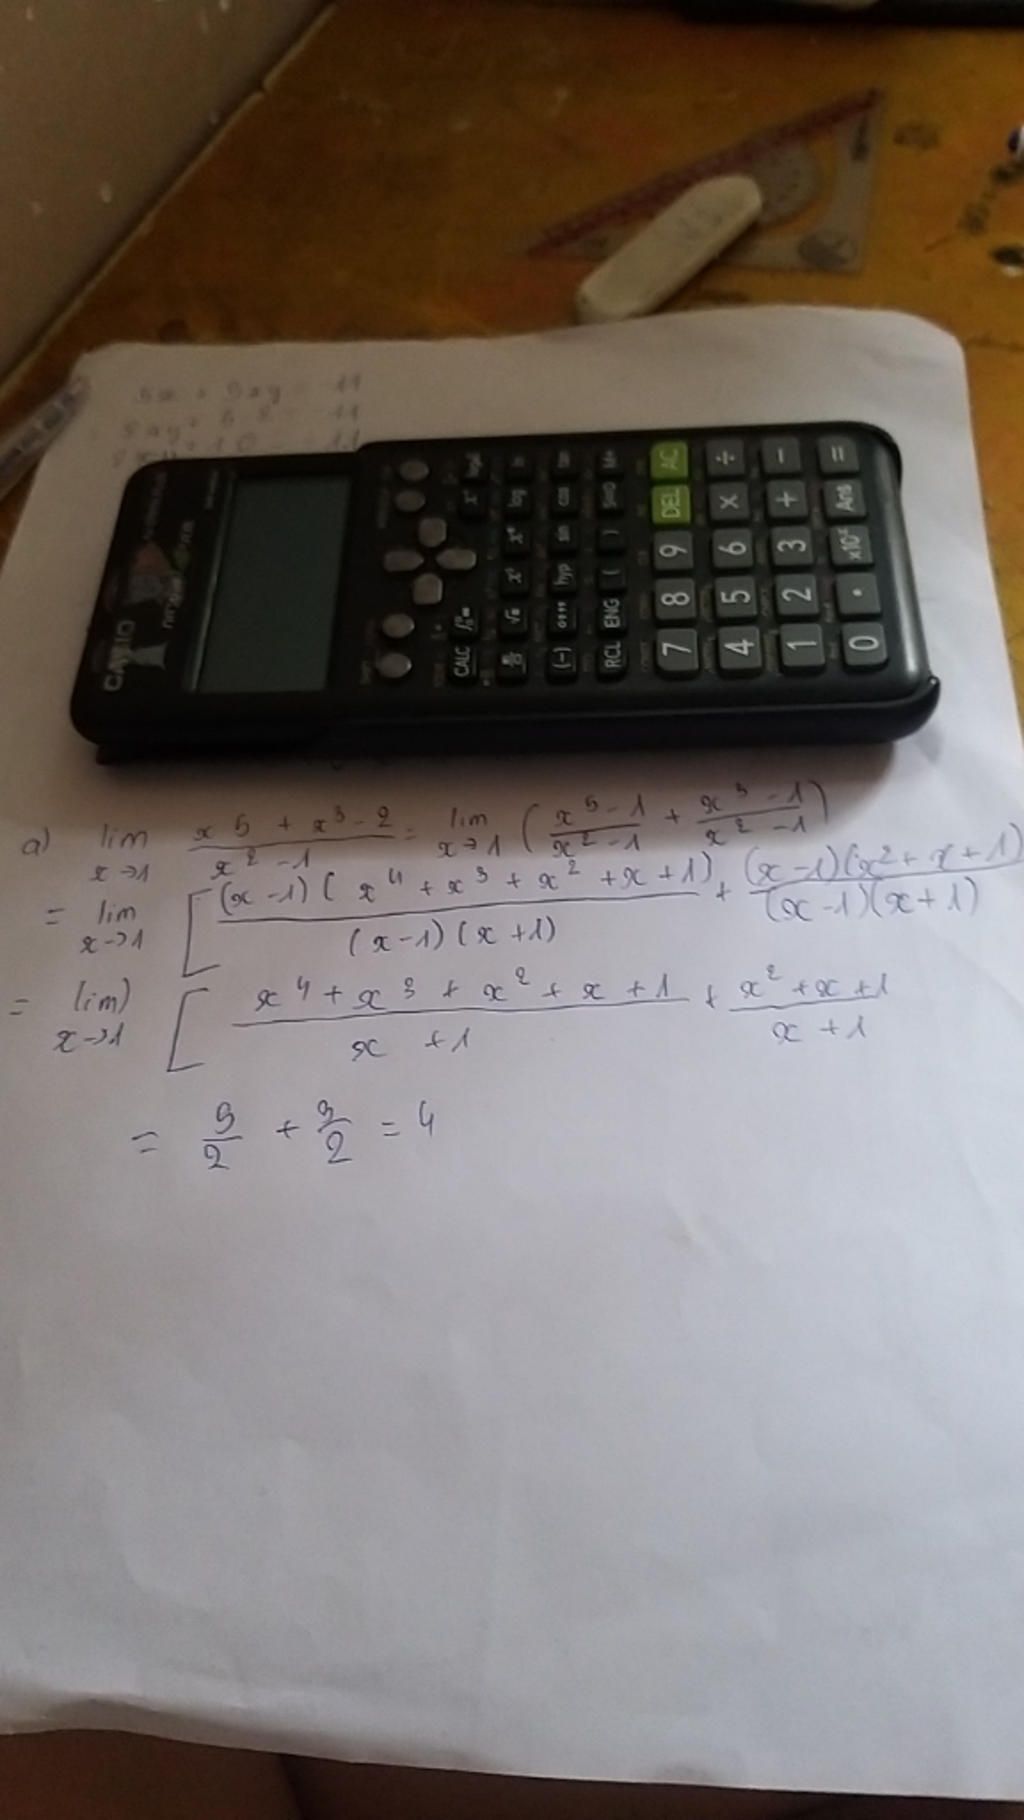 CASIO
CALC
x²
log
ln
(-)
hyp
sin
cos
tan
RCL
ENG
(
)
S⇔D
M+
7
8
9
DEL
AC
4
5
6
×
÷
1
2
3
+
−
0
.
×10ˣ
Ans
=
a) lim x→1 (x^5 + x^3 - 2)/(x^2 - 1) = lim x→1 ((x^5 - 1)/(x^2 - 1) + (x^3 - 1)/(x^2 - 1))
= lim x→1 [((x-1)(x^4 + x^3 + x^2 + x + 1))/((x-1)(x+1)) + ((x-1)(x^2 + x + 1))/((x-1)(x+1))
= lim) x→1 [(x^4 + x^3 + x^2 + x + 1)/(x + 1) + (x^2 + x + 1)/(x + 1)
= 5/2 + 3/2 = 4